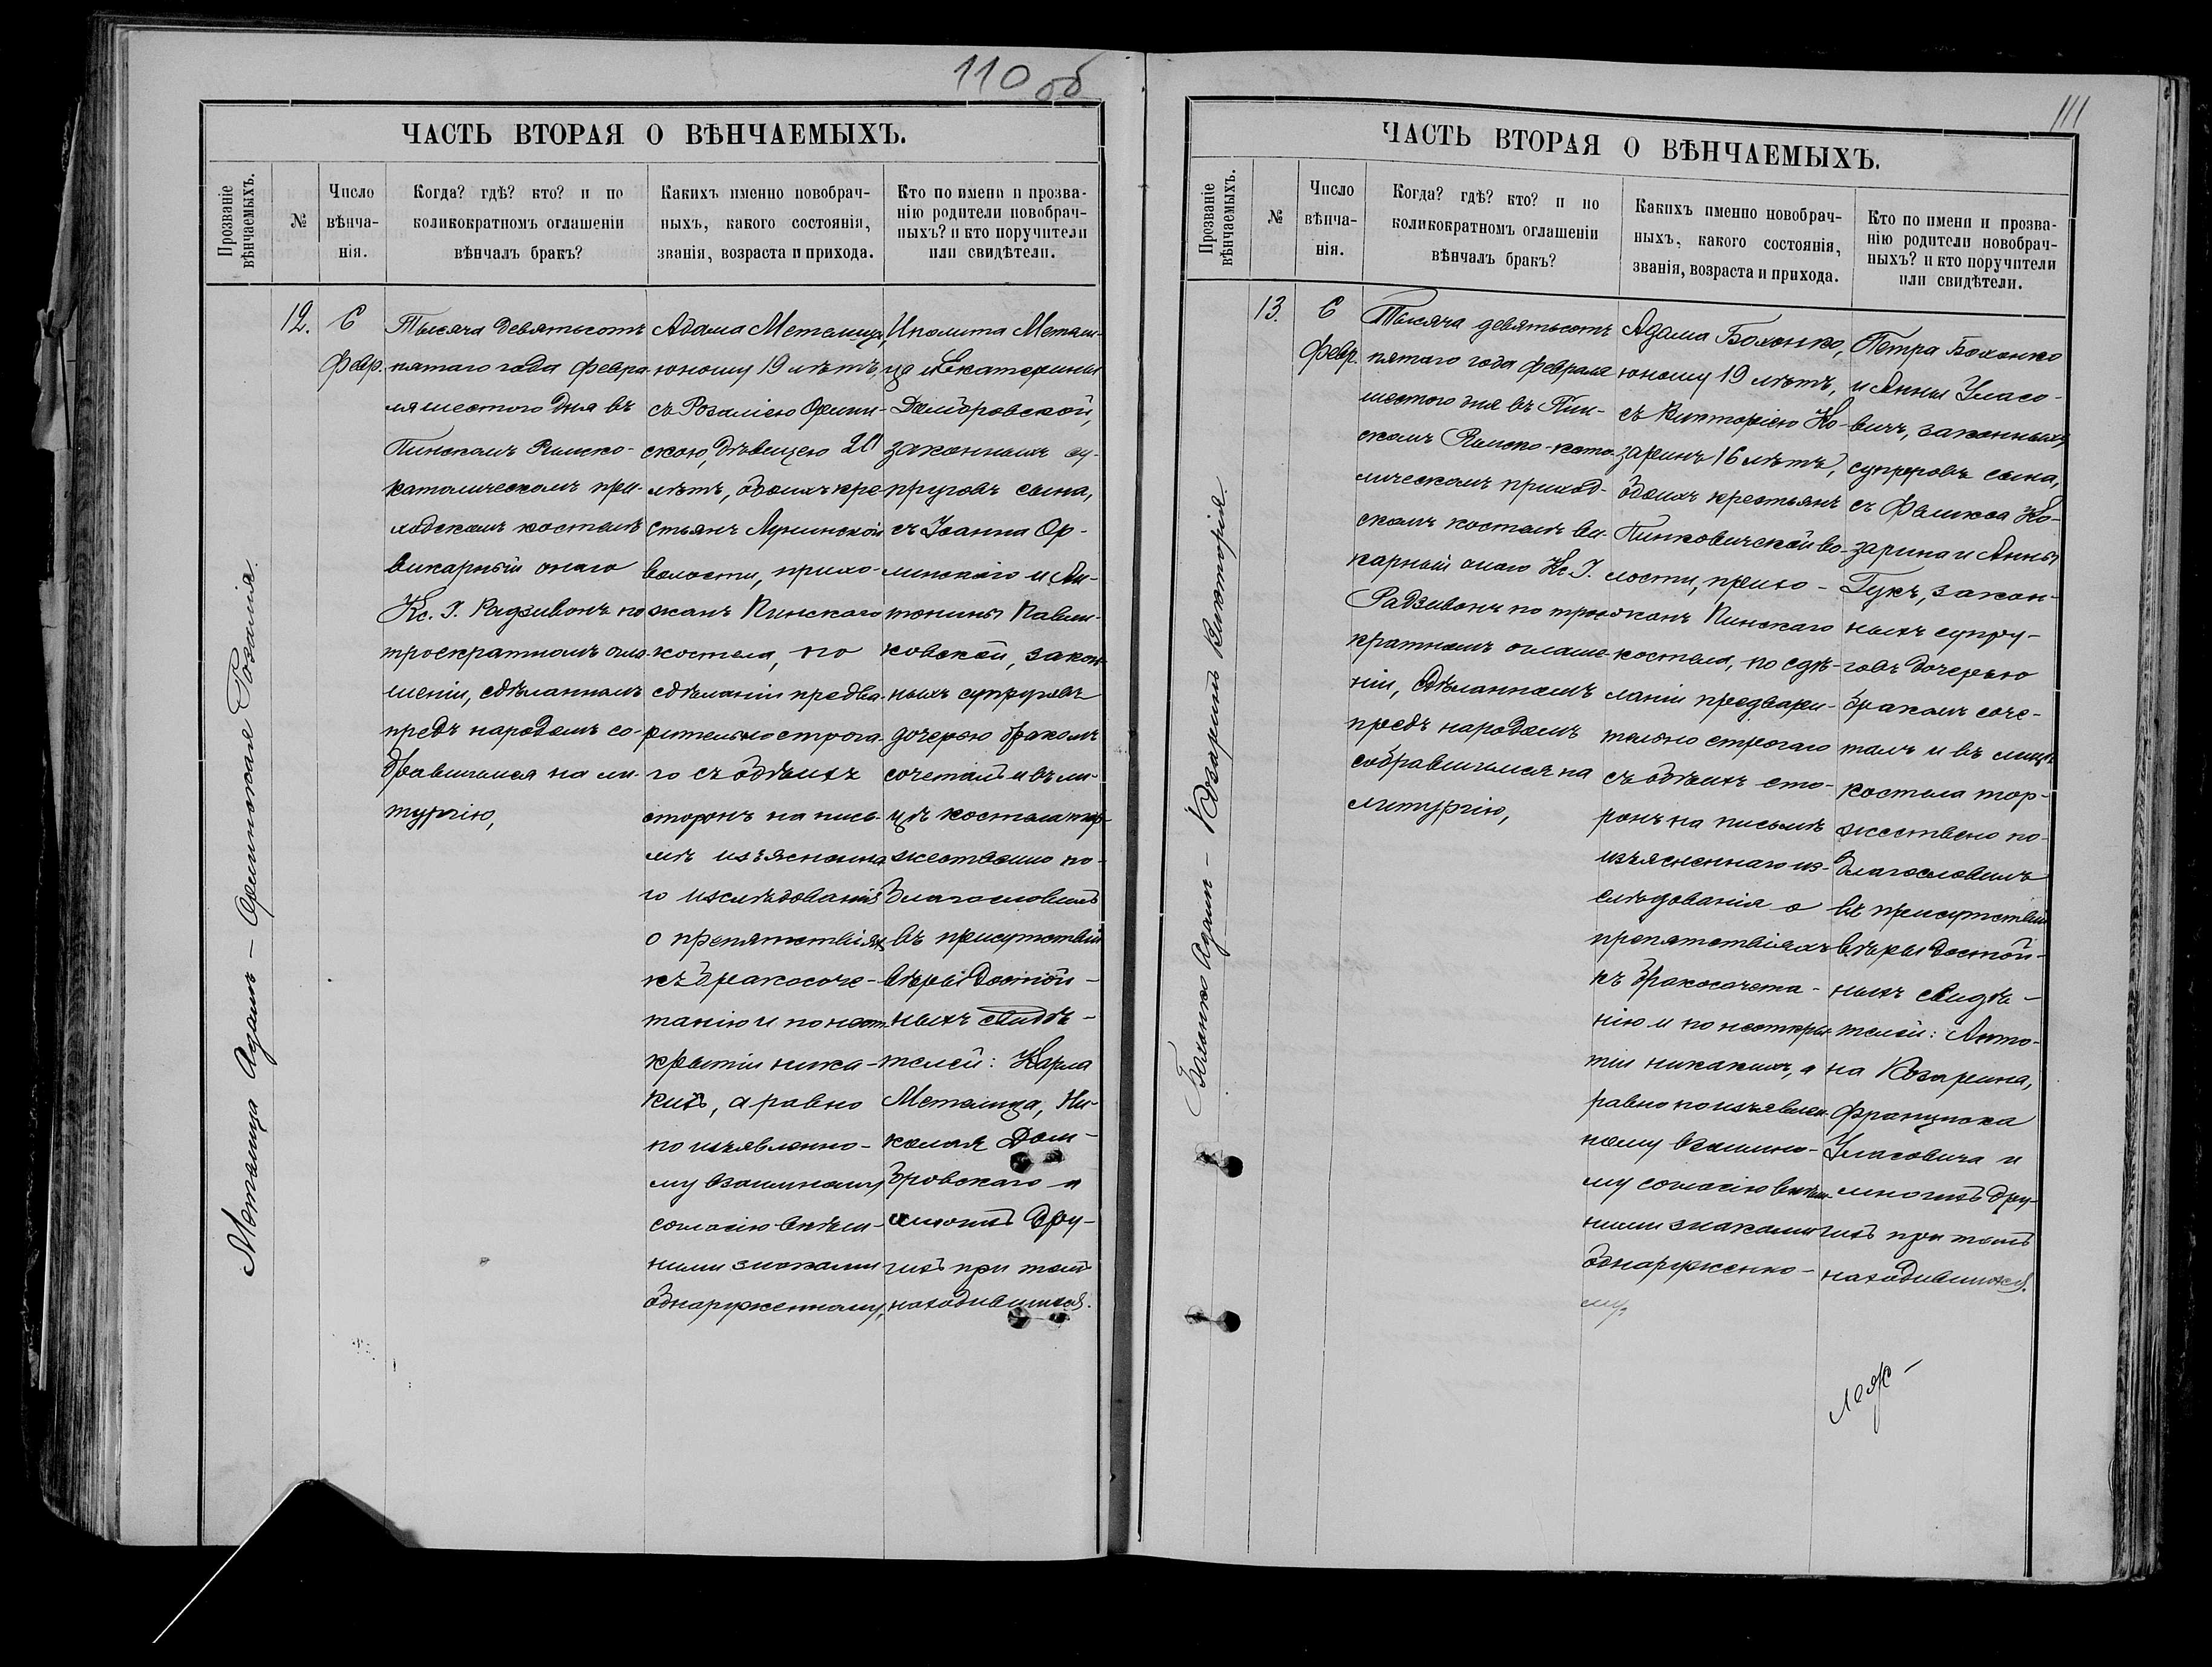 110 об
ЧАСТЬ ВТОРАЯ О ВѢНЧАЕМЫХЪ.
Прозваніе
вѣнчаемыхъ.
№
Число
вѣнча-
нія.
Когда? гдѣ? кто? и по
коликократномъ оглашеніи
вѣнчалъ бракъ?
Какихъ именно новобрач-
ныхъ, какого состоянія,
званія, возраста и прихода.
Кто по имени и прозва-
нію родители новобрач-
ныхъ? и кто поручители
или свидѣтели.
Метелица Адамъ –
Розалія.
12.
6
Февр.
Тысяча девятьсотъ
пятаго года февра
ля шестого дня въ
Пинскомъ Римско-
католическомъ при-
ходскомъ костелѣ
викарный онаго
Кс. І. Радзивонъ по
троекратномъ огла-
шеніи, сдѣланномъ
предъ народомъ со-
бравшимся на ли-
тургію,
Адама Метелица,
юношу 19 лѣтъ,
съ Розаліею
скою, дѣвицею 20
лѣтъ, обоихъ кре-
стьянъ Лунинской
волости, прихо-
жанъ Пинскаго
костела, по
сдѣланіи предва-
рительно строга-
го съ обѣихъ
сторонъ на пись-
мѣ изъясненна
го изслѣдованія
о препятствіяхъ
къ бракосоче-
танію и по неот-
крытіи ника-
кихъ, а равно
по изъявленно-
му взаимному
согласію внѣш-
ними знаками
обнаруженному,
Ипполита Метели-
ца и Екатерины
Домбровской,
законныхъ су-
пруговъ сына,
съ Іоанна Ор-
линскаго и Ан-
тонины Павлю-
ковской, закон-
ныхъ супруговъ
дочерью бракомъ
сочеталъ и въ ли-
цѣ костела тор-
жественно по-
благословилъ
въ присутствіи
вѣры достой-
ныхъ свидѣ-
телей: Карла
Метелица, Ни-
колая Дом-
бровскаго и
многихъ дру-
гихъ при томъ
находившихся.
111
ЧАСТЬ ВТОРАЯ О ВѢНЧАЕМЫХЪ.
Прозваніе
вѣнчаемыхъ.
№
Число
вѣнча-
нія.
Когда? гдѣ? кто? и по
коликократномъ оглашеніи
вѣнчалъ бракъ?
Какихъ именно новобрач-
ныхъ, какого состоянія,
званія, возраста и прихода.
Кто по имени и прозва-
нію родители новобрач-
ныхъ? и кто поручители
или свидѣтели.
Боханко Адамъ – Козаринъ Викторія.
13.
6
Февр.
Тысяча девятьсотъ
пятаго года февраля
шестого дня въ Пин-
скомъ Римско-като-
лическомъ приход-
скомъ костелѣ ви-
карный онаго Кс. І.
Радзивонъ по трое
кратномъ оглаше
ніи, сдѣланномъ
предъ народомъ
собравшимся на
литургію,
Адама Боханко,
юношу 19 лѣтъ,
съ Викторіею Ко-
заринъ 16 лѣтъ,
обоихъ крестьянъ
Пинковичской во-
лости, прихо-
жанъ Пинскаго
костела, по сдѣ-
ланіи предвари-
тельно строгаго
съ обѣихъ сто-
ронъ на письмѣ
изъясненнаго из-
слѣдованія о
препятствіяхъ
къ бракосочета-
нію и по неоткры-
тіи никакихъ, а
равно по изъявлен-
ному взаимно-
му согласію внѣш-
ними знаками
обнаруженно-
му,
Петра Боханко
и Анны Уласо-
вичъ, законныхъ
супруговъ сына,
съ Феликса Ко-
зарина и Анны
Гукъ, закон-
ныхъ супру-
говъ дочерью
бракомъ соче-
талъ и въ лицѣ
костела тор-
жественно по-
благословилъ
въ присутствіи
вѣры достой-
ныхъ свидѣ-
телей: Анто-
на Козарина,
Франциска
Уласовича и
многихъ дру-
гихъ при томъ
находившихся.